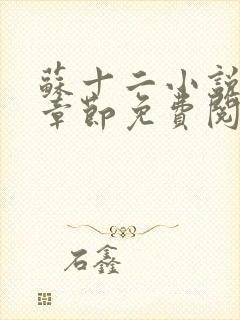 蘇十二小說
章節免費閱
石鑫